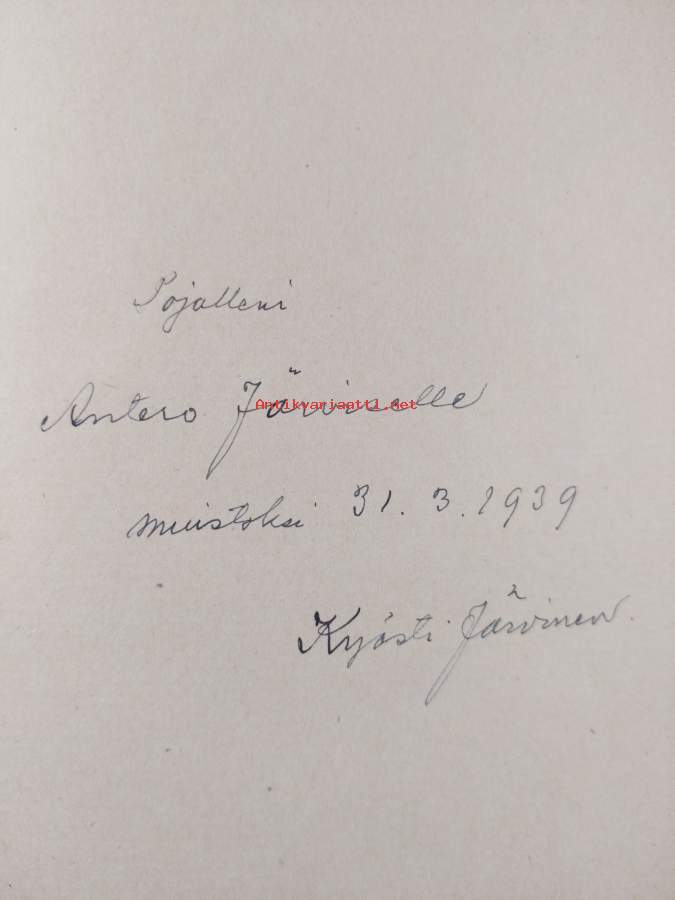 Pojalleni
Antero Järviselle
Antikvariaatti.net
muistoksi 31.3.1939
Kyösti Järvinen.